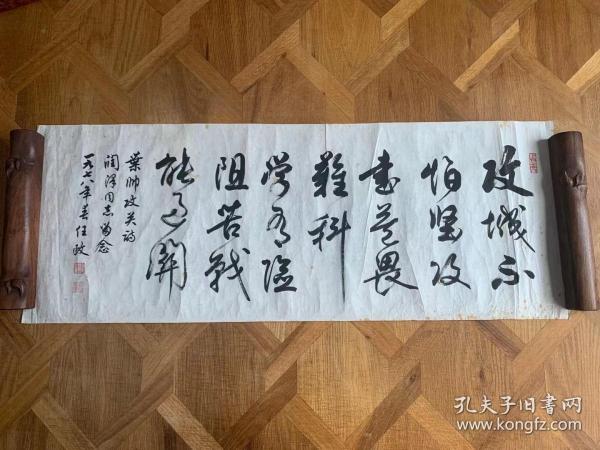 攻城不
怕坚攻
书莫畏
難科
学有险
阻苦战
能过関
葉帅攻关诗
润泽同志留念
一九七八年春任政
孔夫子旧书网
www.kongfz.com